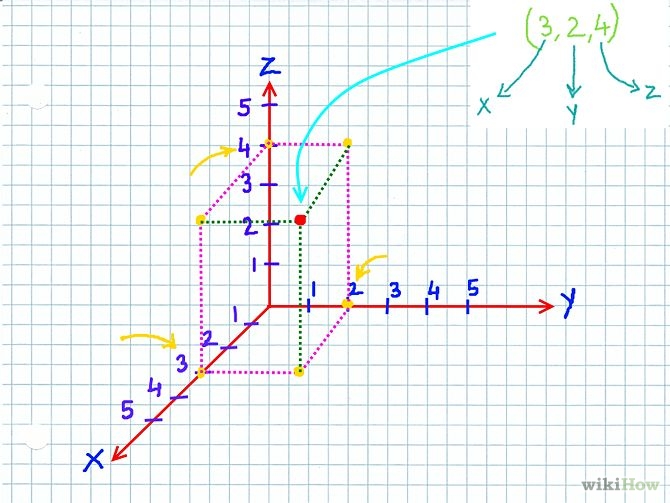 (3,2,4)
X Y Z
Z
5
4
3
2
1
1 2 3 4 5 Y
1
2
3
4
5
X
wikiHow